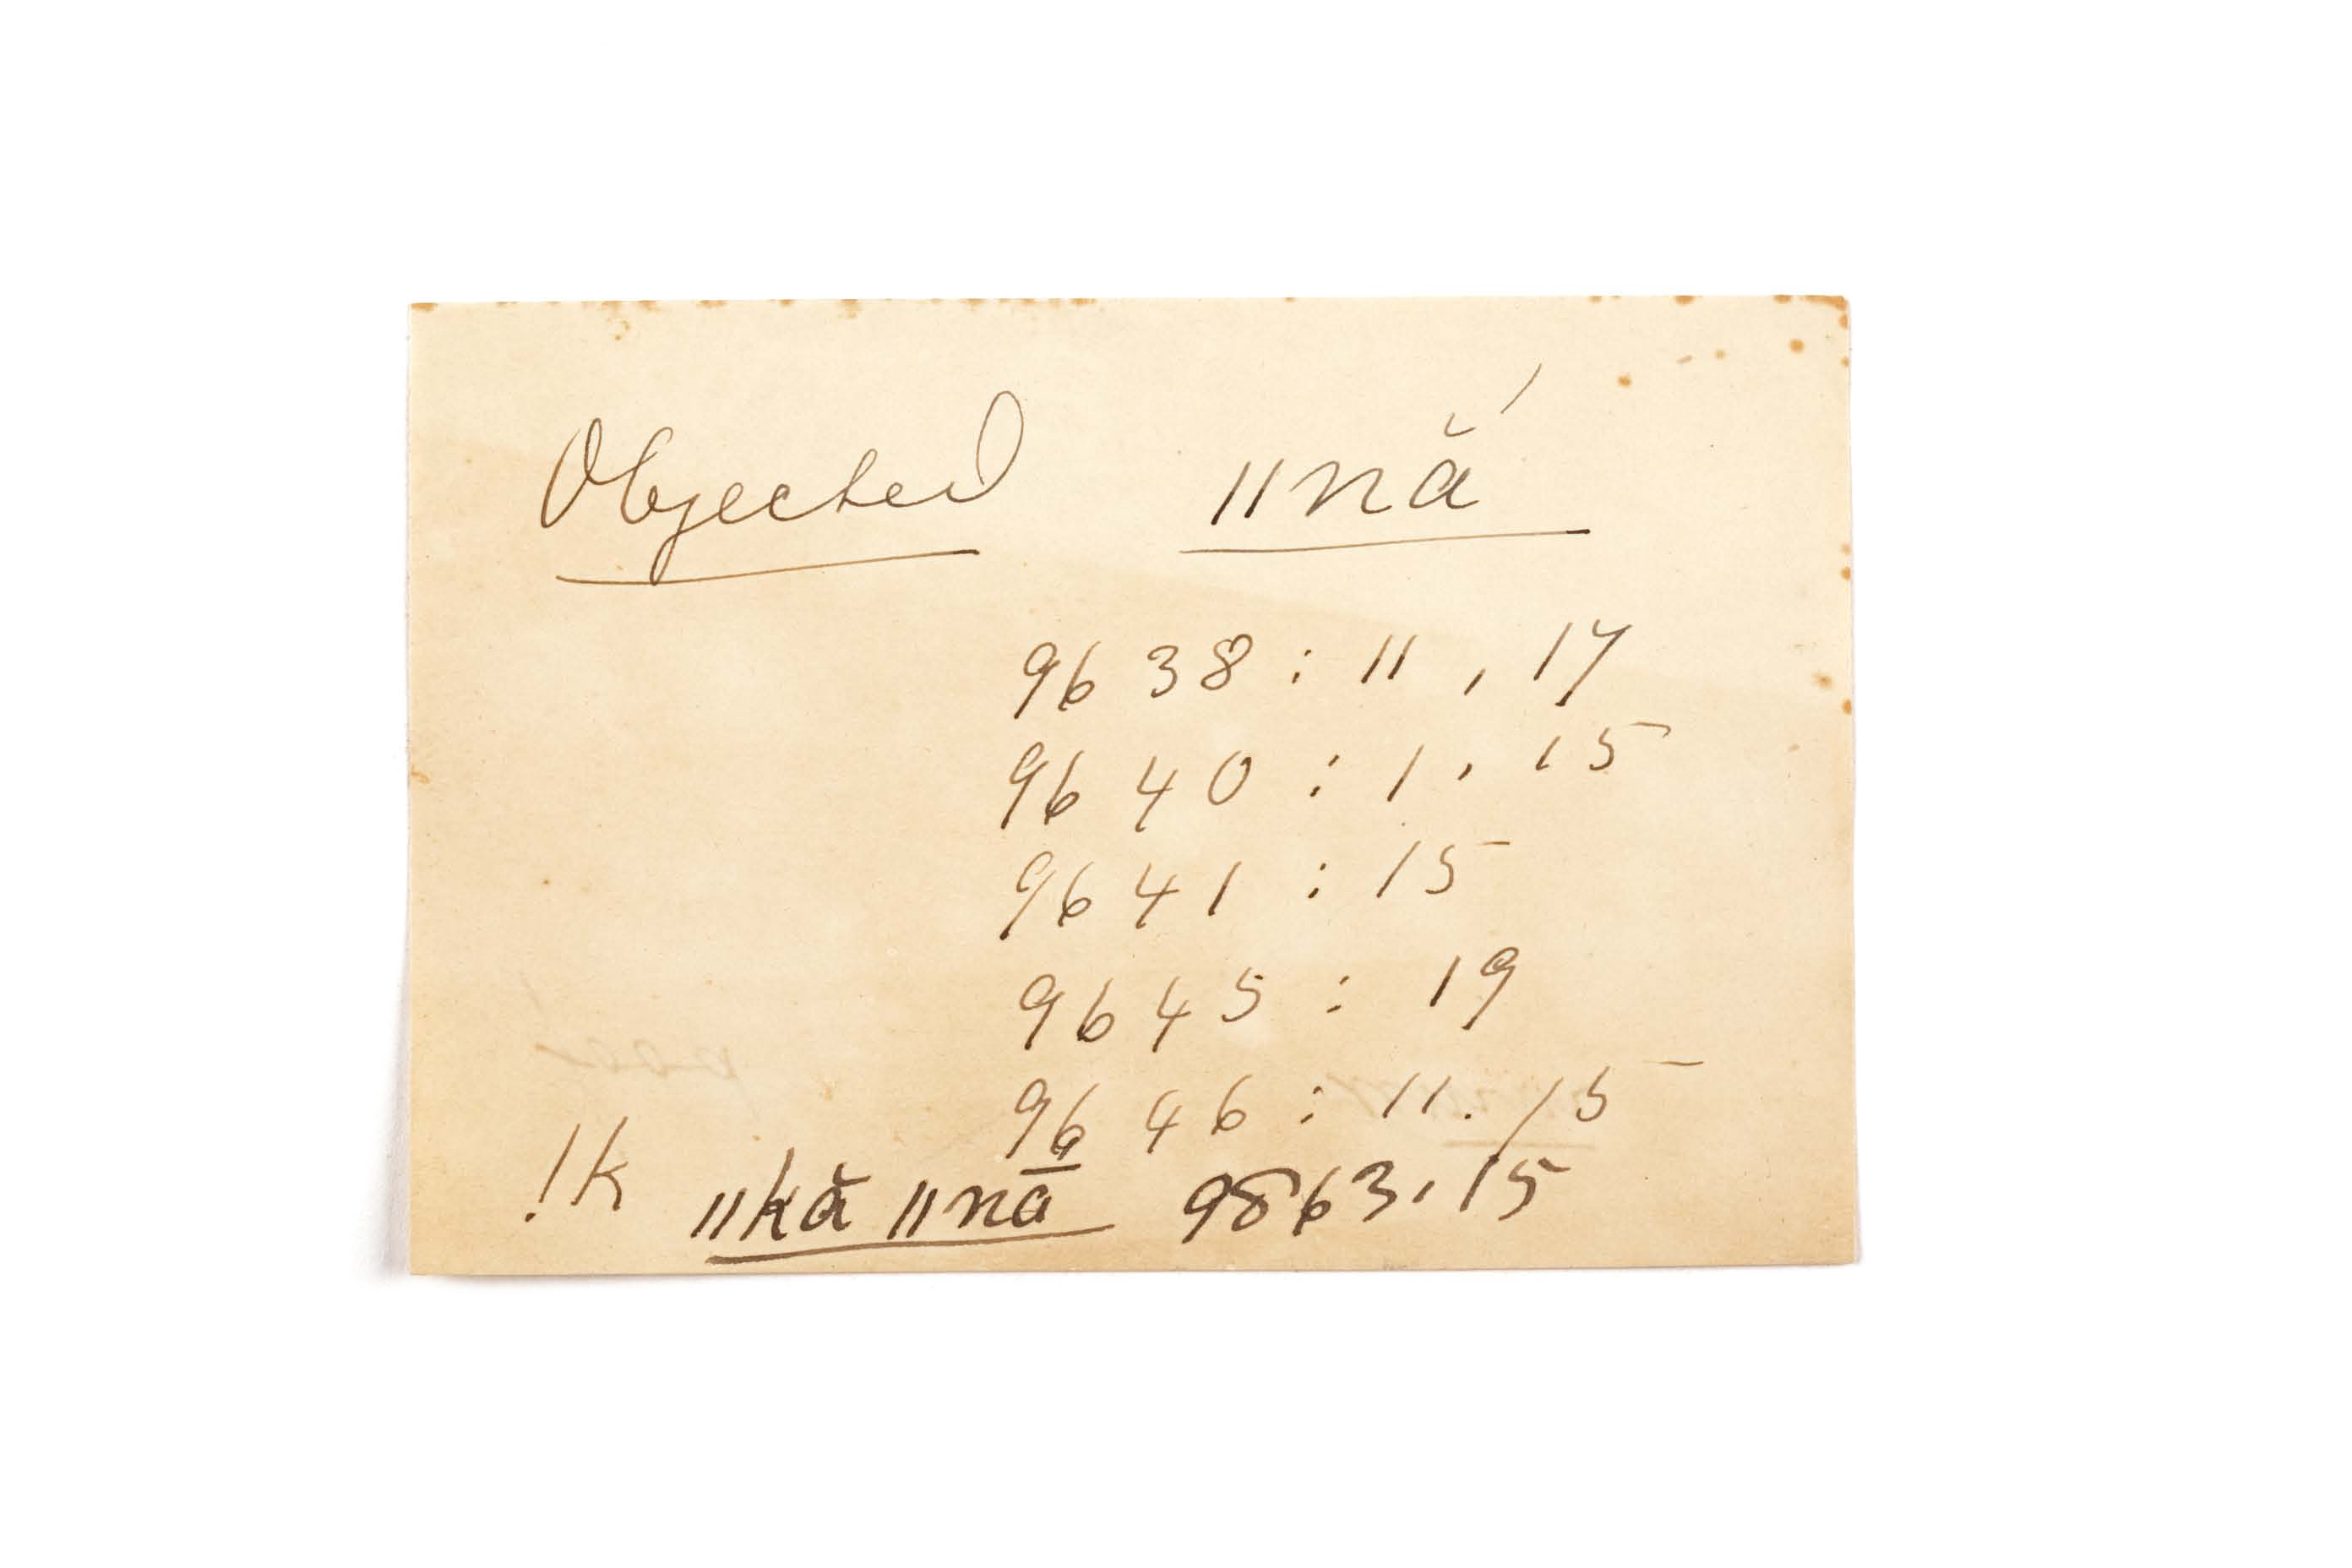 Objected ǁnă´
9638 : 11, 17
9640 : 1, 15
9641 : 15
9645 : 19
9646 : 11. 15
!k ǁkă ǁnā 9863, 15